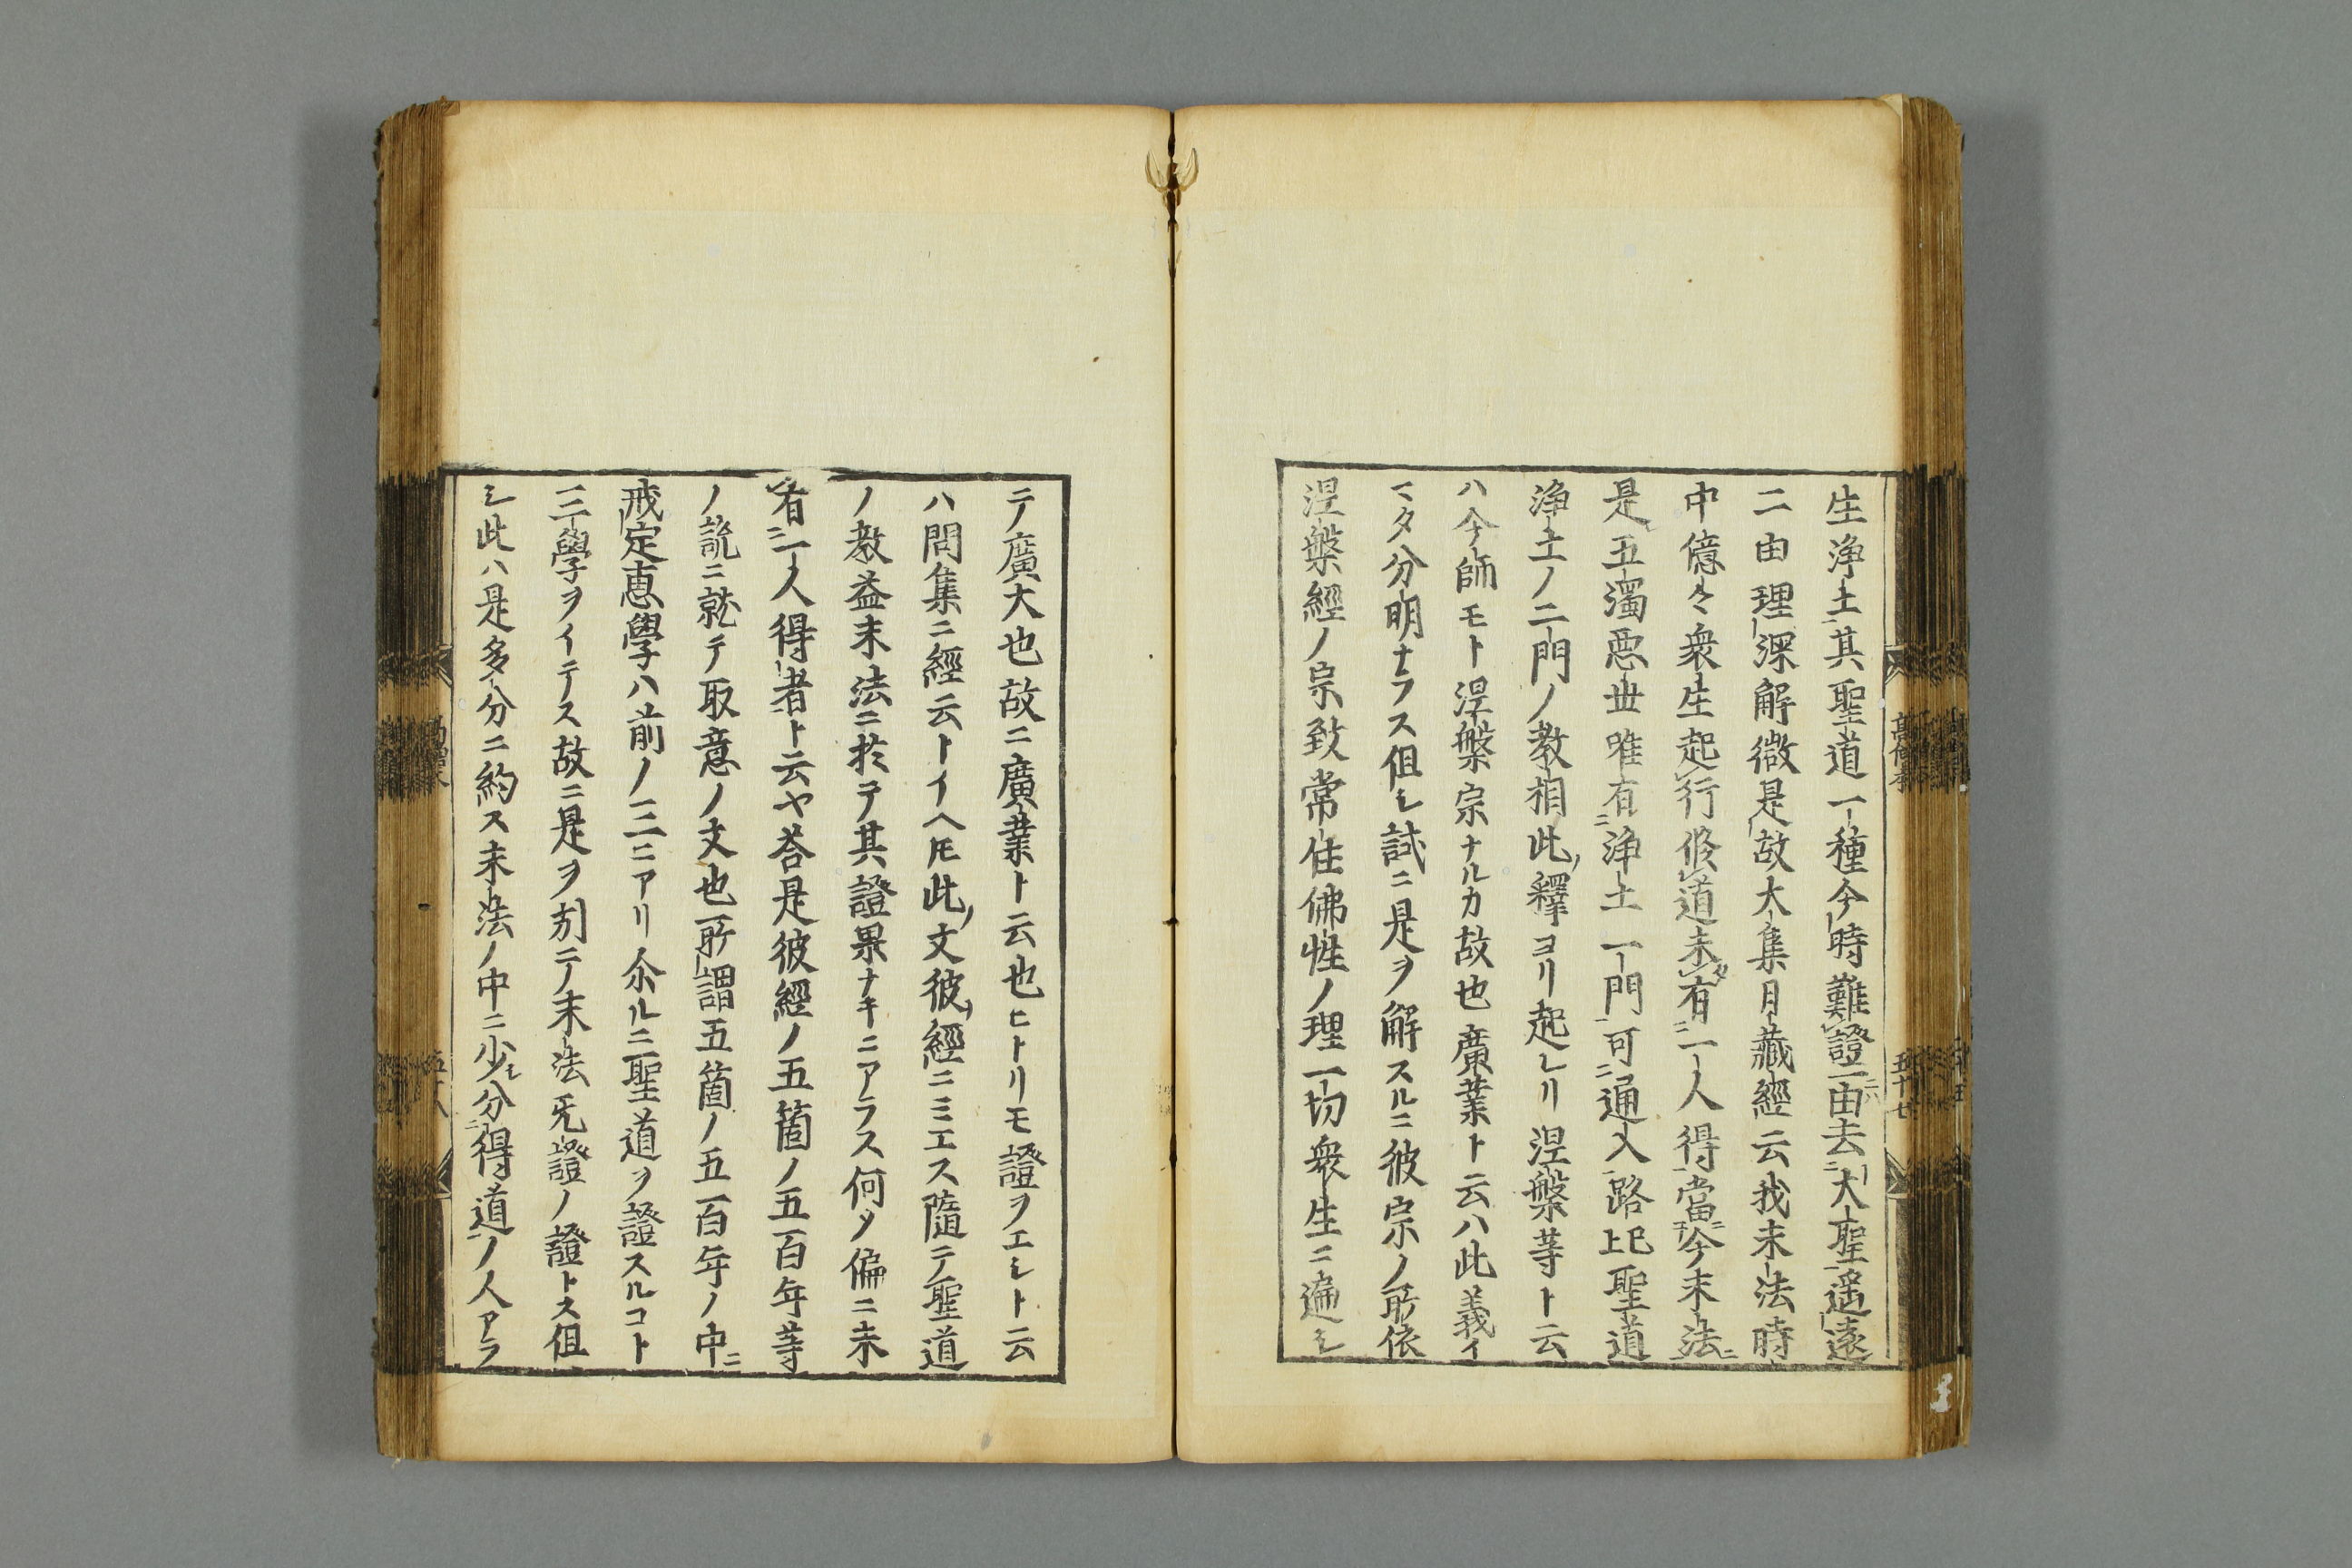 生淨土其聖道一種今時難證一由去大聖遙遠
二由理深解微是故大集月藏經云我末法時
中億々衆生起行修道未有一人得當今末法
是五濁惡世唯有淨土一門可通入路上已聖道
淨土ノ二門ノ教相此釋ヨリ起レリ涅槃等ト云
ハ今師モト涅槃宗ナルカ故也廣業ト云ハ此義イ
マタ分明ナラス但シ試ニ是ヲ解スルニ彼宗ノ所依
涅槃經ノ宗致常住佛性ノ理一切衆生ニ遍シ
テ廣大也故ニ廣業ト云也ヒトリモ證ヲエシト云
ハ問集ニ經云トイヘ𪜈此文彼經ニミエス隨テ聖道
ノ教益末法ニ於テ其證果ナキニアラス何ソ偏ニ未
有一人得者ト云ヤ荅是彼經ノ五箇ノ五百年等
ノ說ニ就テ取意ノ文也所謂五箇ノ五百年ノ中ニ
戒定惠學ハ前ノ三ニアリ尒ルニ聖道ヲ證スルコト
三學ヲイテス故ニ是ヲ別テ末法无證ノ證トス但
シ此ハ是多分ニ約ス末法ノ中ニ少分得道ノ人アラ